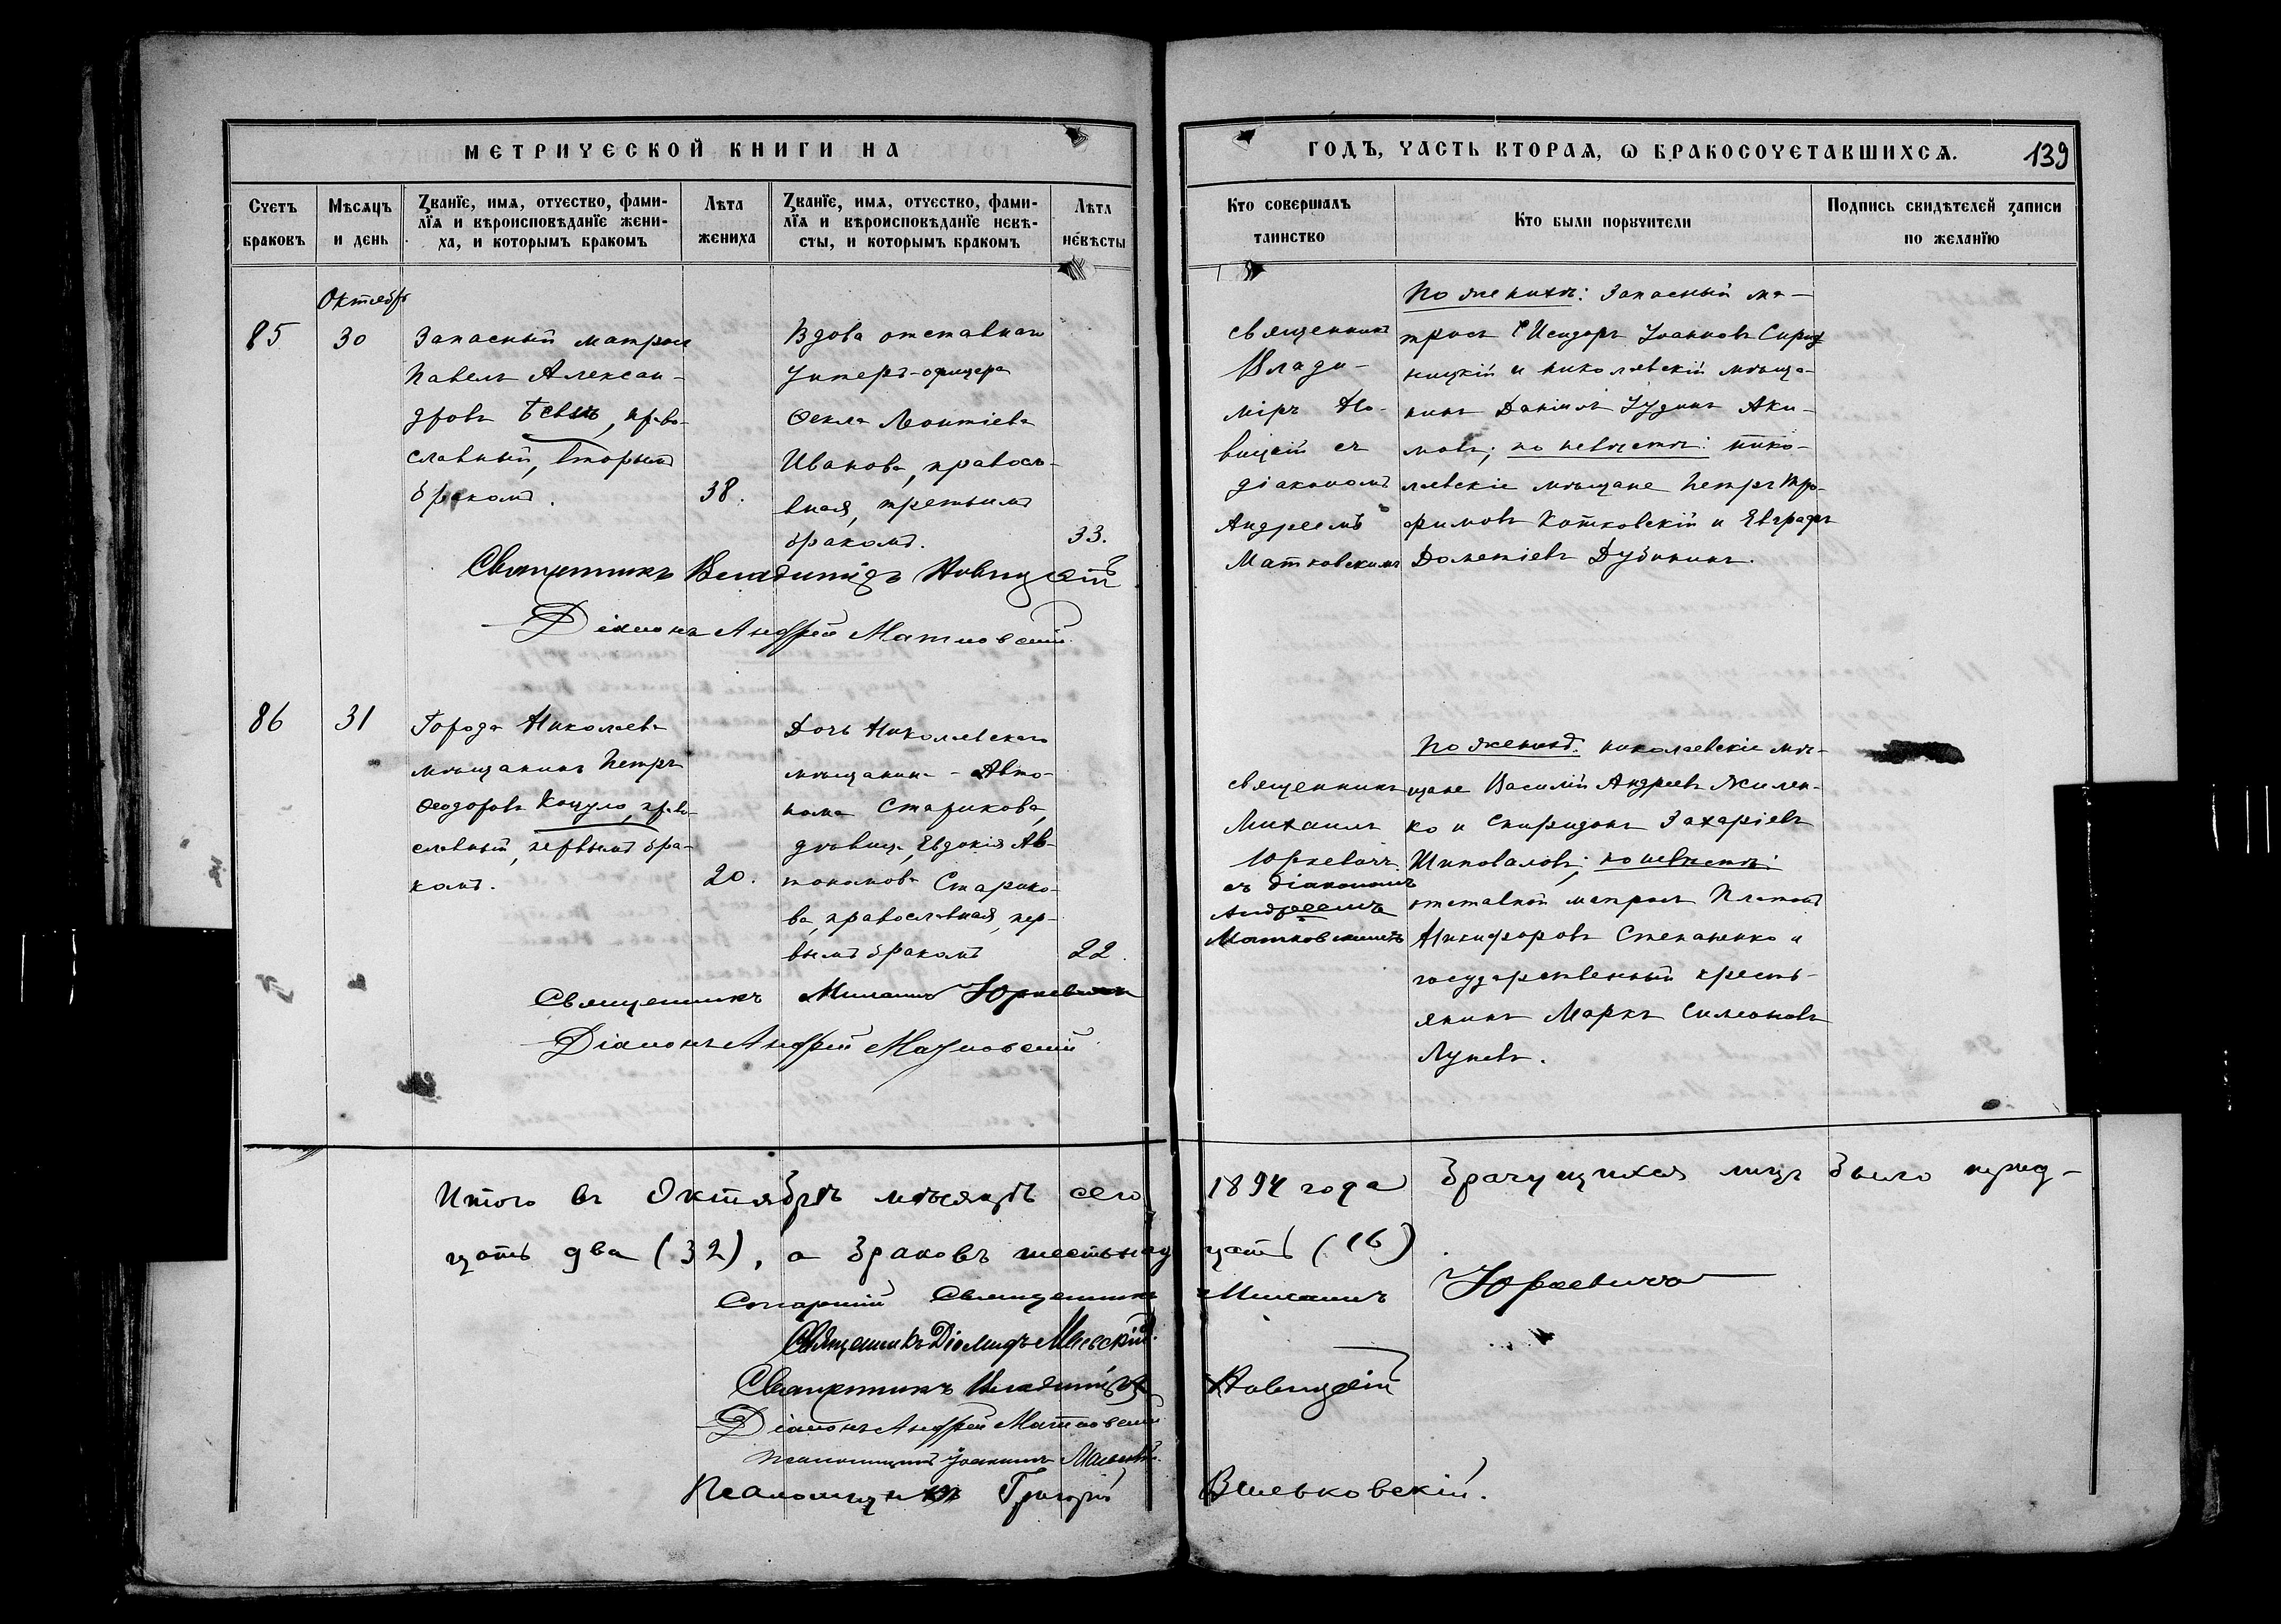 МЕТРИЧЕСКОЙ КНИГИ НА
ГОДЪ, ЧАСТЬ ВТОРАЯ, Ѡ БРАКОСОЧЕТАВШИХСЯ.
139
Счетъ браковъ
Мѣсяцъ и день
Званїе, имя, отчество, фами-
лїя и вѣроисповѣданїе жени-
ха, и которымъ бракомъ
Лѣта жениха
Званїе, имя, отчество, фами-
лїя и вѣроисповѣданїе невѣ-
сты, и которымъ бракомъ
Лѣта невѣсты
Кто совершалъ
таинство
Кто были поручители
Подпись свидѣтелей записи
по желанїю
Октябрь
85
30
Запасный матросъ
Павелъ Алексан-
дровъ, право-
славный, вторымъ
бракомъ.
38.
Вдова отставнаго
Унтеръ-офицера
Ѳекла Леонтіева
Иванова, правосла-
вная, третьимъ
бракомъ.
33.
священникъ
Влади-
міръ Но-
вицкій съ
діакономъ
Андреемъ
Матковскимъ
По женихѣ: Запасный ма-
тросъ Исидоръ Іоанновъ
и николаевскій мѣща-
нинъ Даніилъ Іудинъ Аки-
мовъ; по невѣстѣ: нико-
лаевскіе мѣщане Петръ Тро-
фимовъ Котковскій и Евграфъ
Дометіевъ Дубининъ.
Священникъ Владиміръ Новицкій
Діаконъ Андрей Матковскій
86
31
Города Николаева
мѣщанинъ Петръ
Ѳеодоровъ Коцуло, право-
славный, первымъ бра-
комъ.
20.
Дочь Николаевскаго
мѣщанина Авто-
нома Старикова,
дѣвица Евдокія Ав-
тономова Старико-
ва, православная, пер-
вымъ бракомъ
22.
священникъ
Михаилъ
Юркевичъ
съ діакономъ
Андреемъ
Матковскимъ
По женихѣ: николаевскіе мѣ-
щане Василій Андреевъ Жилен-
ко и Спиридонъ Захаріевъ
Шиповаловъ; по невѣстѣ:
отставной матросъ Платонъ
Никифоровъ Степаненко и
государственный кресть-
янинъ Маркъ Симеоновъ
Лупевъ.
Священникъ Михаилъ Юркевичъ
Діаконъ Андрей Матковскій
Итого въ Октябрѣ мѣсяцѣ сего 1894 года брачущихся лицъ было трид-
цать два (32), а браковъ шестьнадцать (16)
Старшій Священникъ Михаилъ Юркевичъ
Священникъ Діомидъ
Священникъ Владиміръ Новицкій
Діаконъ Андрей Матковскій
Псаломщикъ Іоаннъ
Псаломщикъ Григорій Вильковскій.